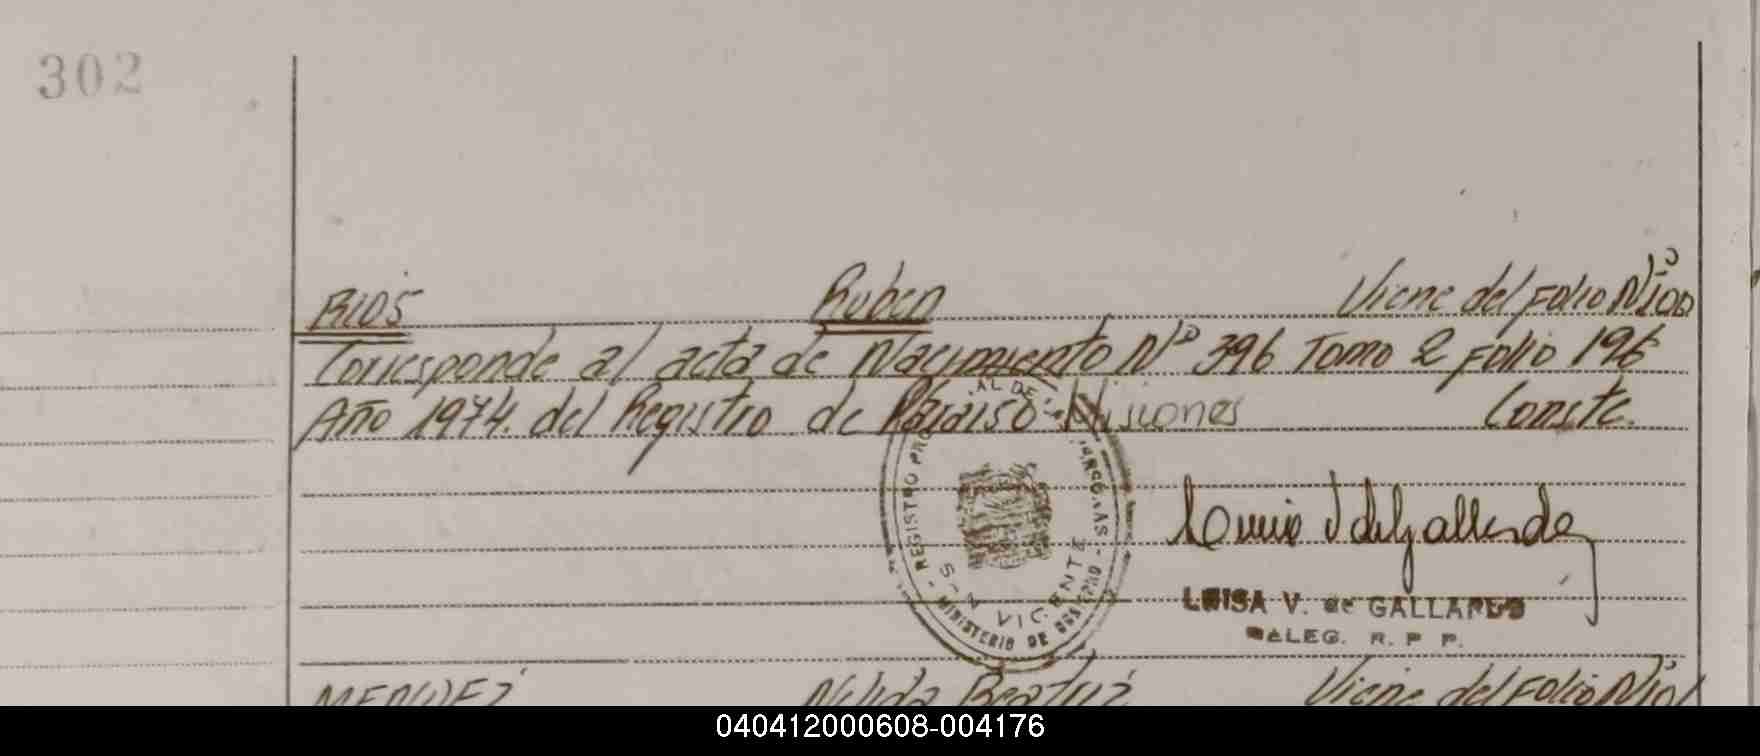 302
RIOS Ruben Viene del Folio Nº 100
Corresponde al acta de Nacimiento Nº 396 Tomo 2 Folio 196
Año 1974. del Registro de Paraiso - Misiones Conste.
REGISTRO AL DE
SAN VICENTE
MINISTERIO DE
LUISA V. de GALLARDO
DELEG. R. P. P.
MENDEZ Nilida Beatriz Viene del Folio Nº 101
040412000608-004176